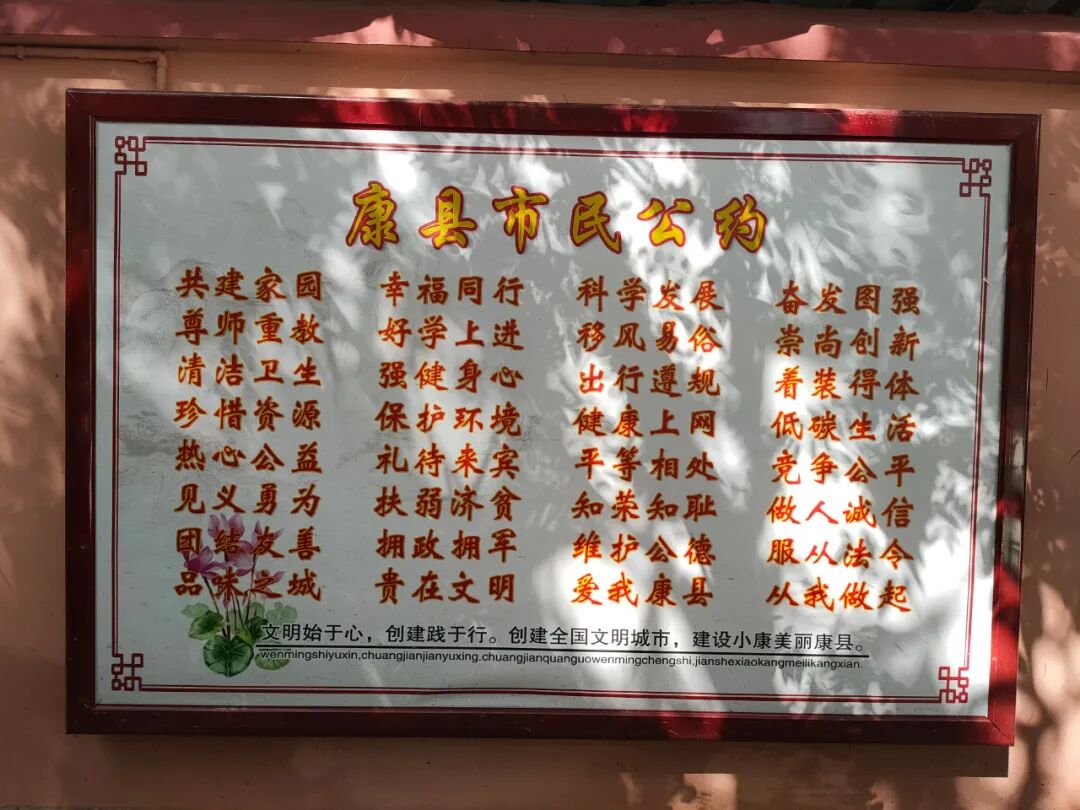 康县市民公约
共建家园 幸福同行 科学发展 奋发图强
尊师重教 好学上进 移风易俗 崇尚创新
清洁卫生 强健身心 出行遵规 着装得体
珍惜资源 保护环境 健康上网 低碳生活
热心公益 礼待来宾 平等相处 竞争公平
见义勇为 扶弱济贫 知荣知耻 做人诚信
团结友善 拥政拥军 维护公德 服从法令
品味之城 贵在文明 爱我康县 从我做起
文明始于心，创建践于行。创建全国文明城市，建设小康美丽康县。
wenmingshiyuxin,chuangjianjianyuxing.chuangjianquanguowenmingchengshi,jianshexiaokangmeilikangxian.